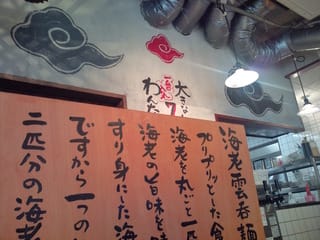 大きな
わんた
海老雲呑麺
プリプリッとした食
海老を丸ごと一匹
海老の旨味を
すり身にした海
ですから一つの
二匹分の海老